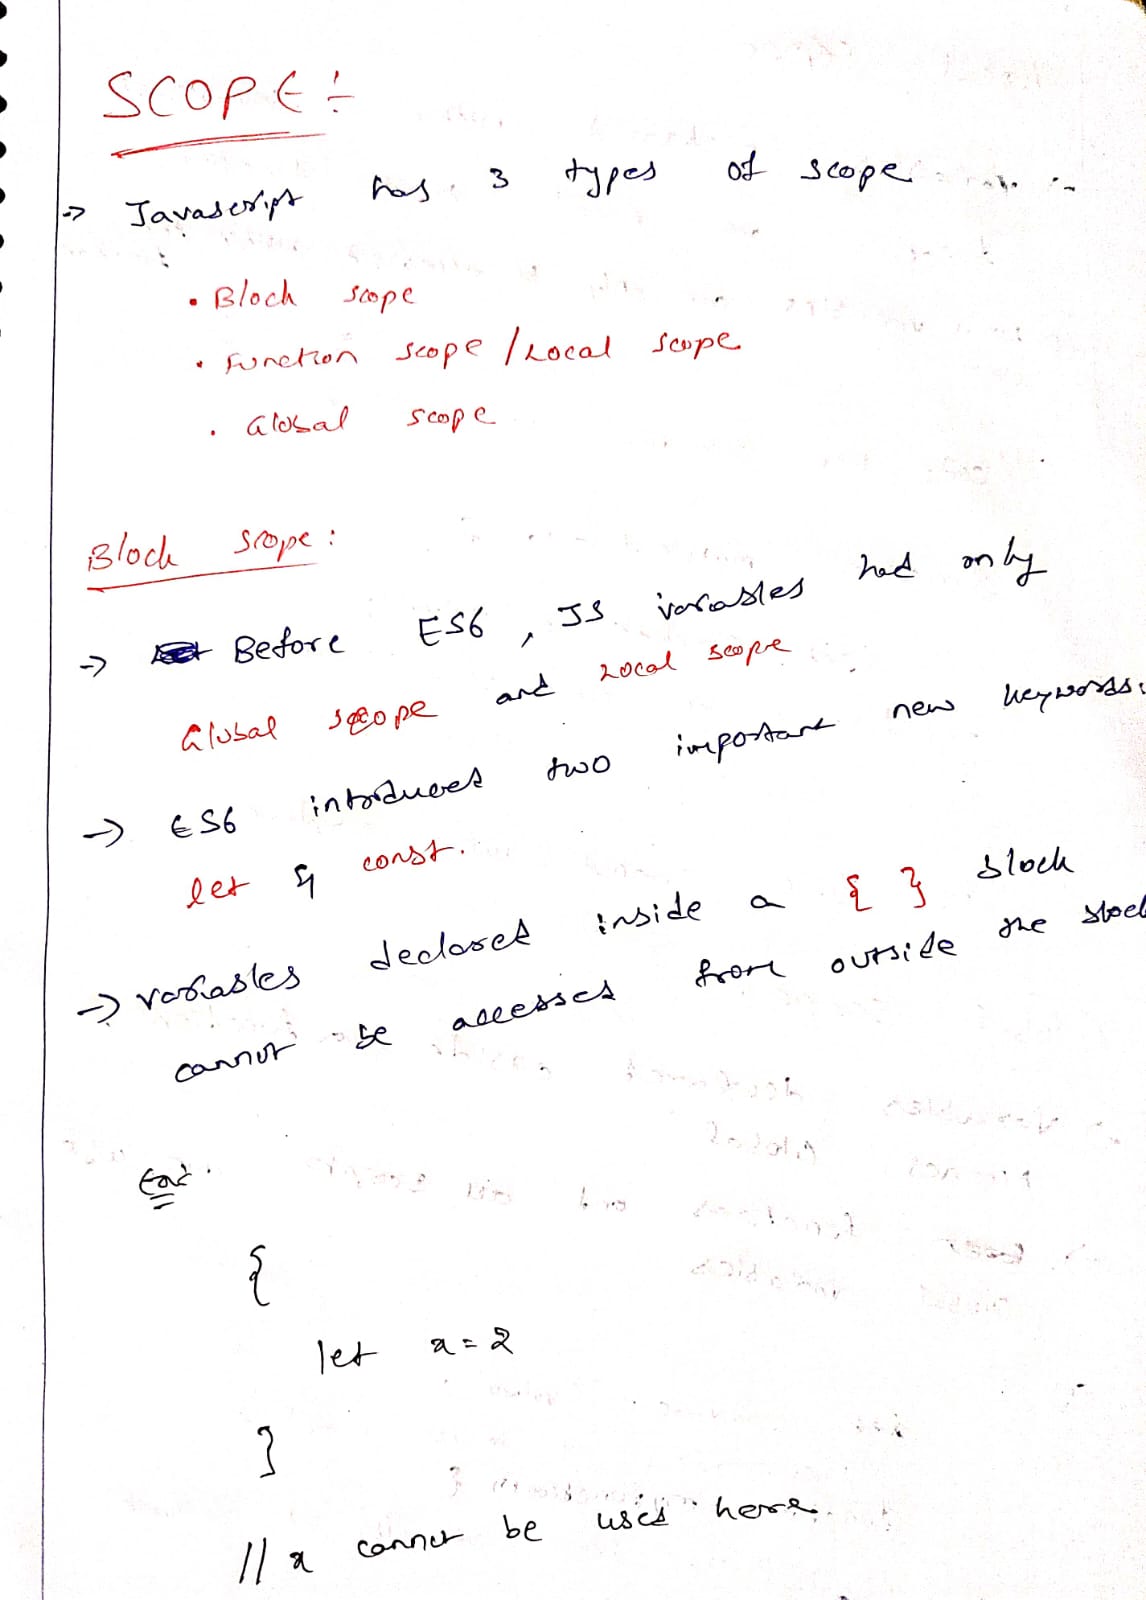 SCOPE :-
-> Javascript has 3 types of scope
• Block scope
• Function scope / Local scope
• Global scope
Block scope :
-> Before ES6 , JS variables had only
Global scope and Local scope
-> ES6 introduced two important new keywords:
let & const.
-> variables declared inside a { } block
cannot be accessed from outside the block
Ex:
{
let x = 2
}
// x cannot be used here